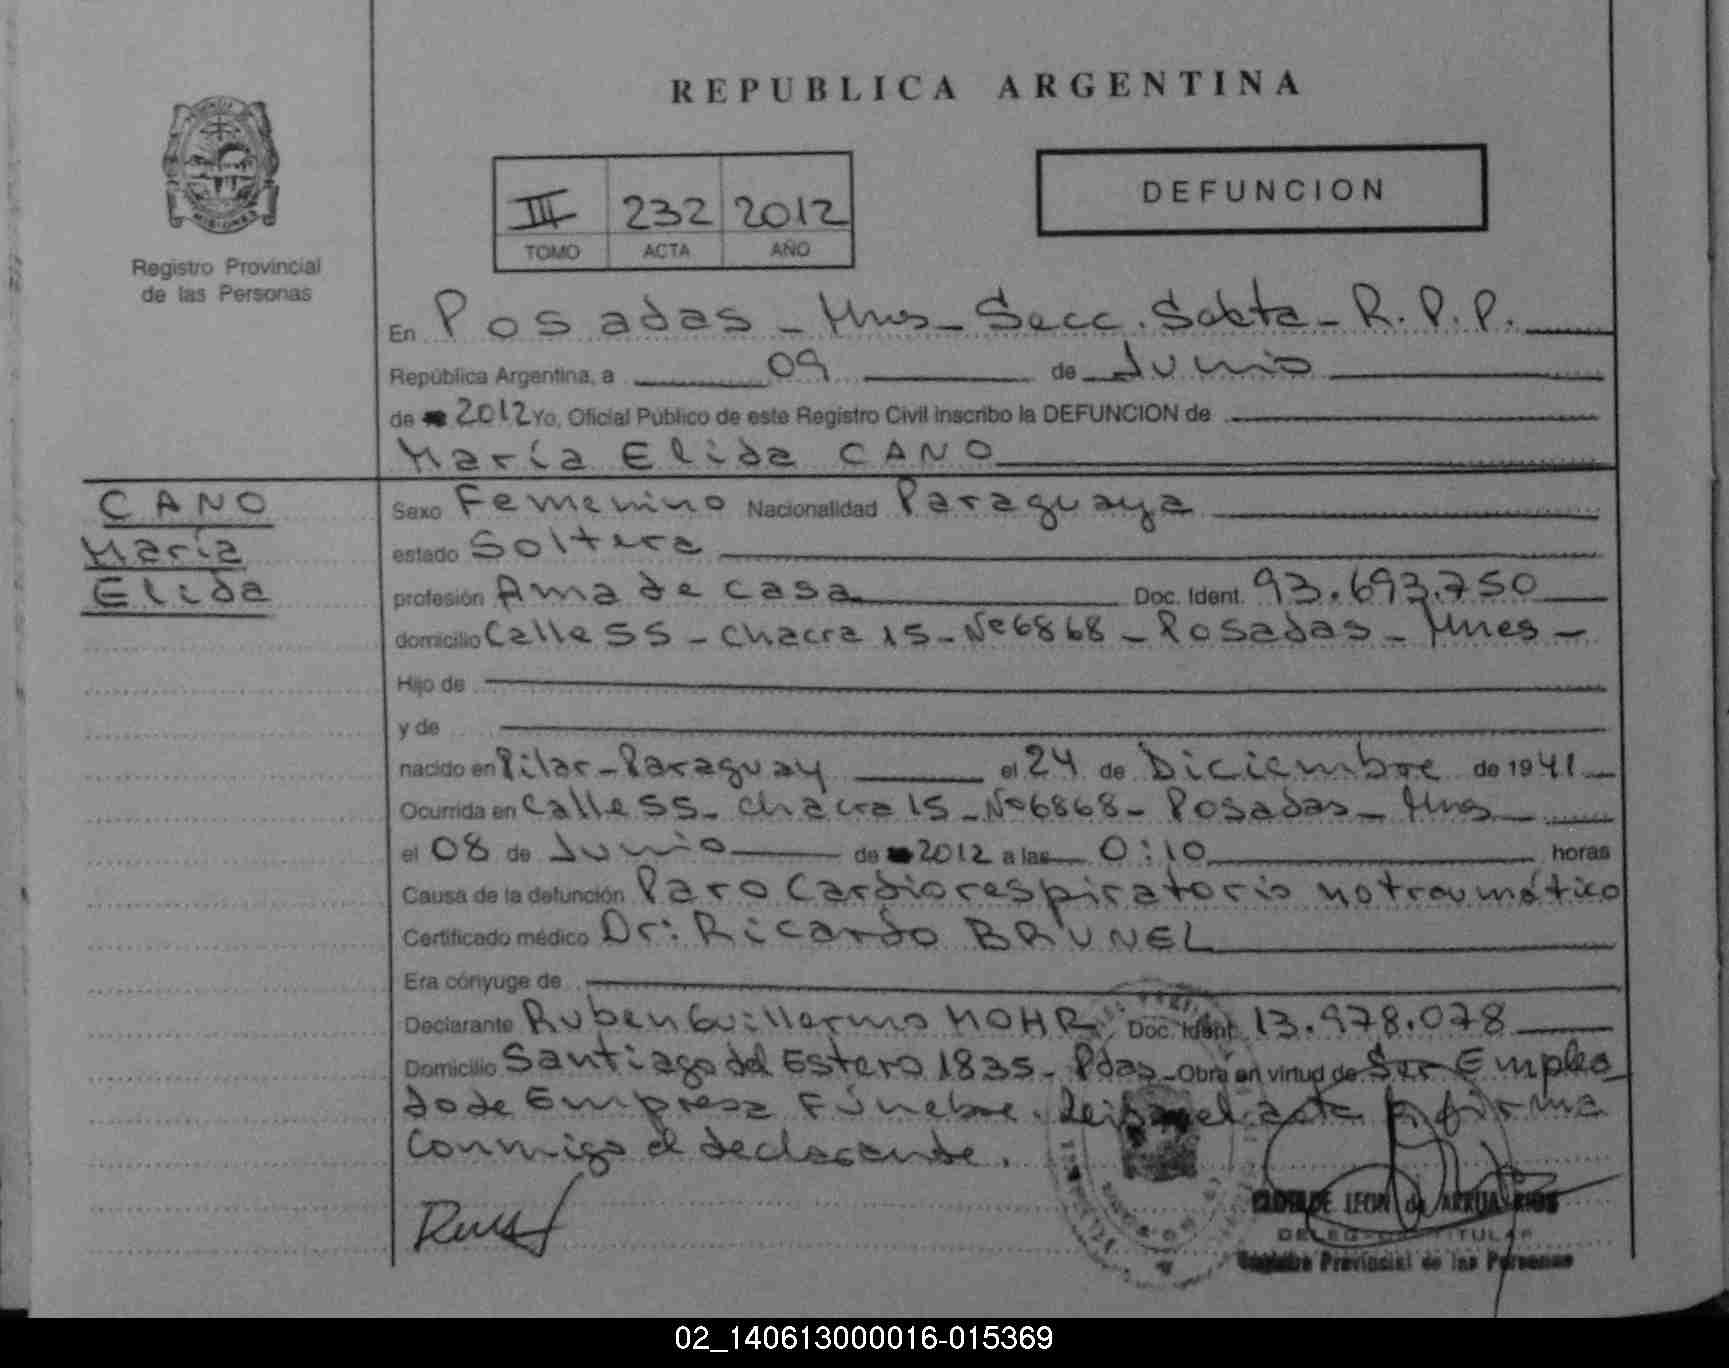 REPUBLICA ARGENTINA
MISIONES
Registro Provincial
de las Personas
III 232 2012
TOMO ACTA AÑO
DEFUNCION
En Posadas - Mnes - Secc. Sexta - R.P.P.
República Argentina, a 09 de Junio
de 2012 Yo, Oficial Público de este Registro Civil inscribo la DEFUNCION de
María Elida CANO
CANO
María
Elida
Sexo Femenino Nacionalidad Paraguaya
estado Soltera
profesión Ama de casa Doc. Ident. 93.693.750
domicilio Calle 55 - chacra 15 - Nº 6868 - Posadas - Mnes -
Hijo de
y de
nacido en Pilar - Paraguay el 24 de Diciembre de 1941
Ocurrida en Calle 55 - chacra 15 - Nº 6868 - Posadas - Mnes
el 08 de Junio de 2012 a las 0:10 horas
Causa de la defunción Paro Cardiorespiratorio no traumático
Certificado médico Dr: Ricardo BRUNEL
Era cónyuge de
Declarante Ruben Guillermo MOHR Doc. Ident. 13.978.078
Domicilio Santiago del Estero 1835 - Pdas - Obra en virtud de Ser Emplea
do de Empresa Fúnebre. Leida el acta la firma
conmigo el declarante.
LEON de ARRUA RIOS
TITULAR
Registro Provincial de las Personas
02_140613000016-015369